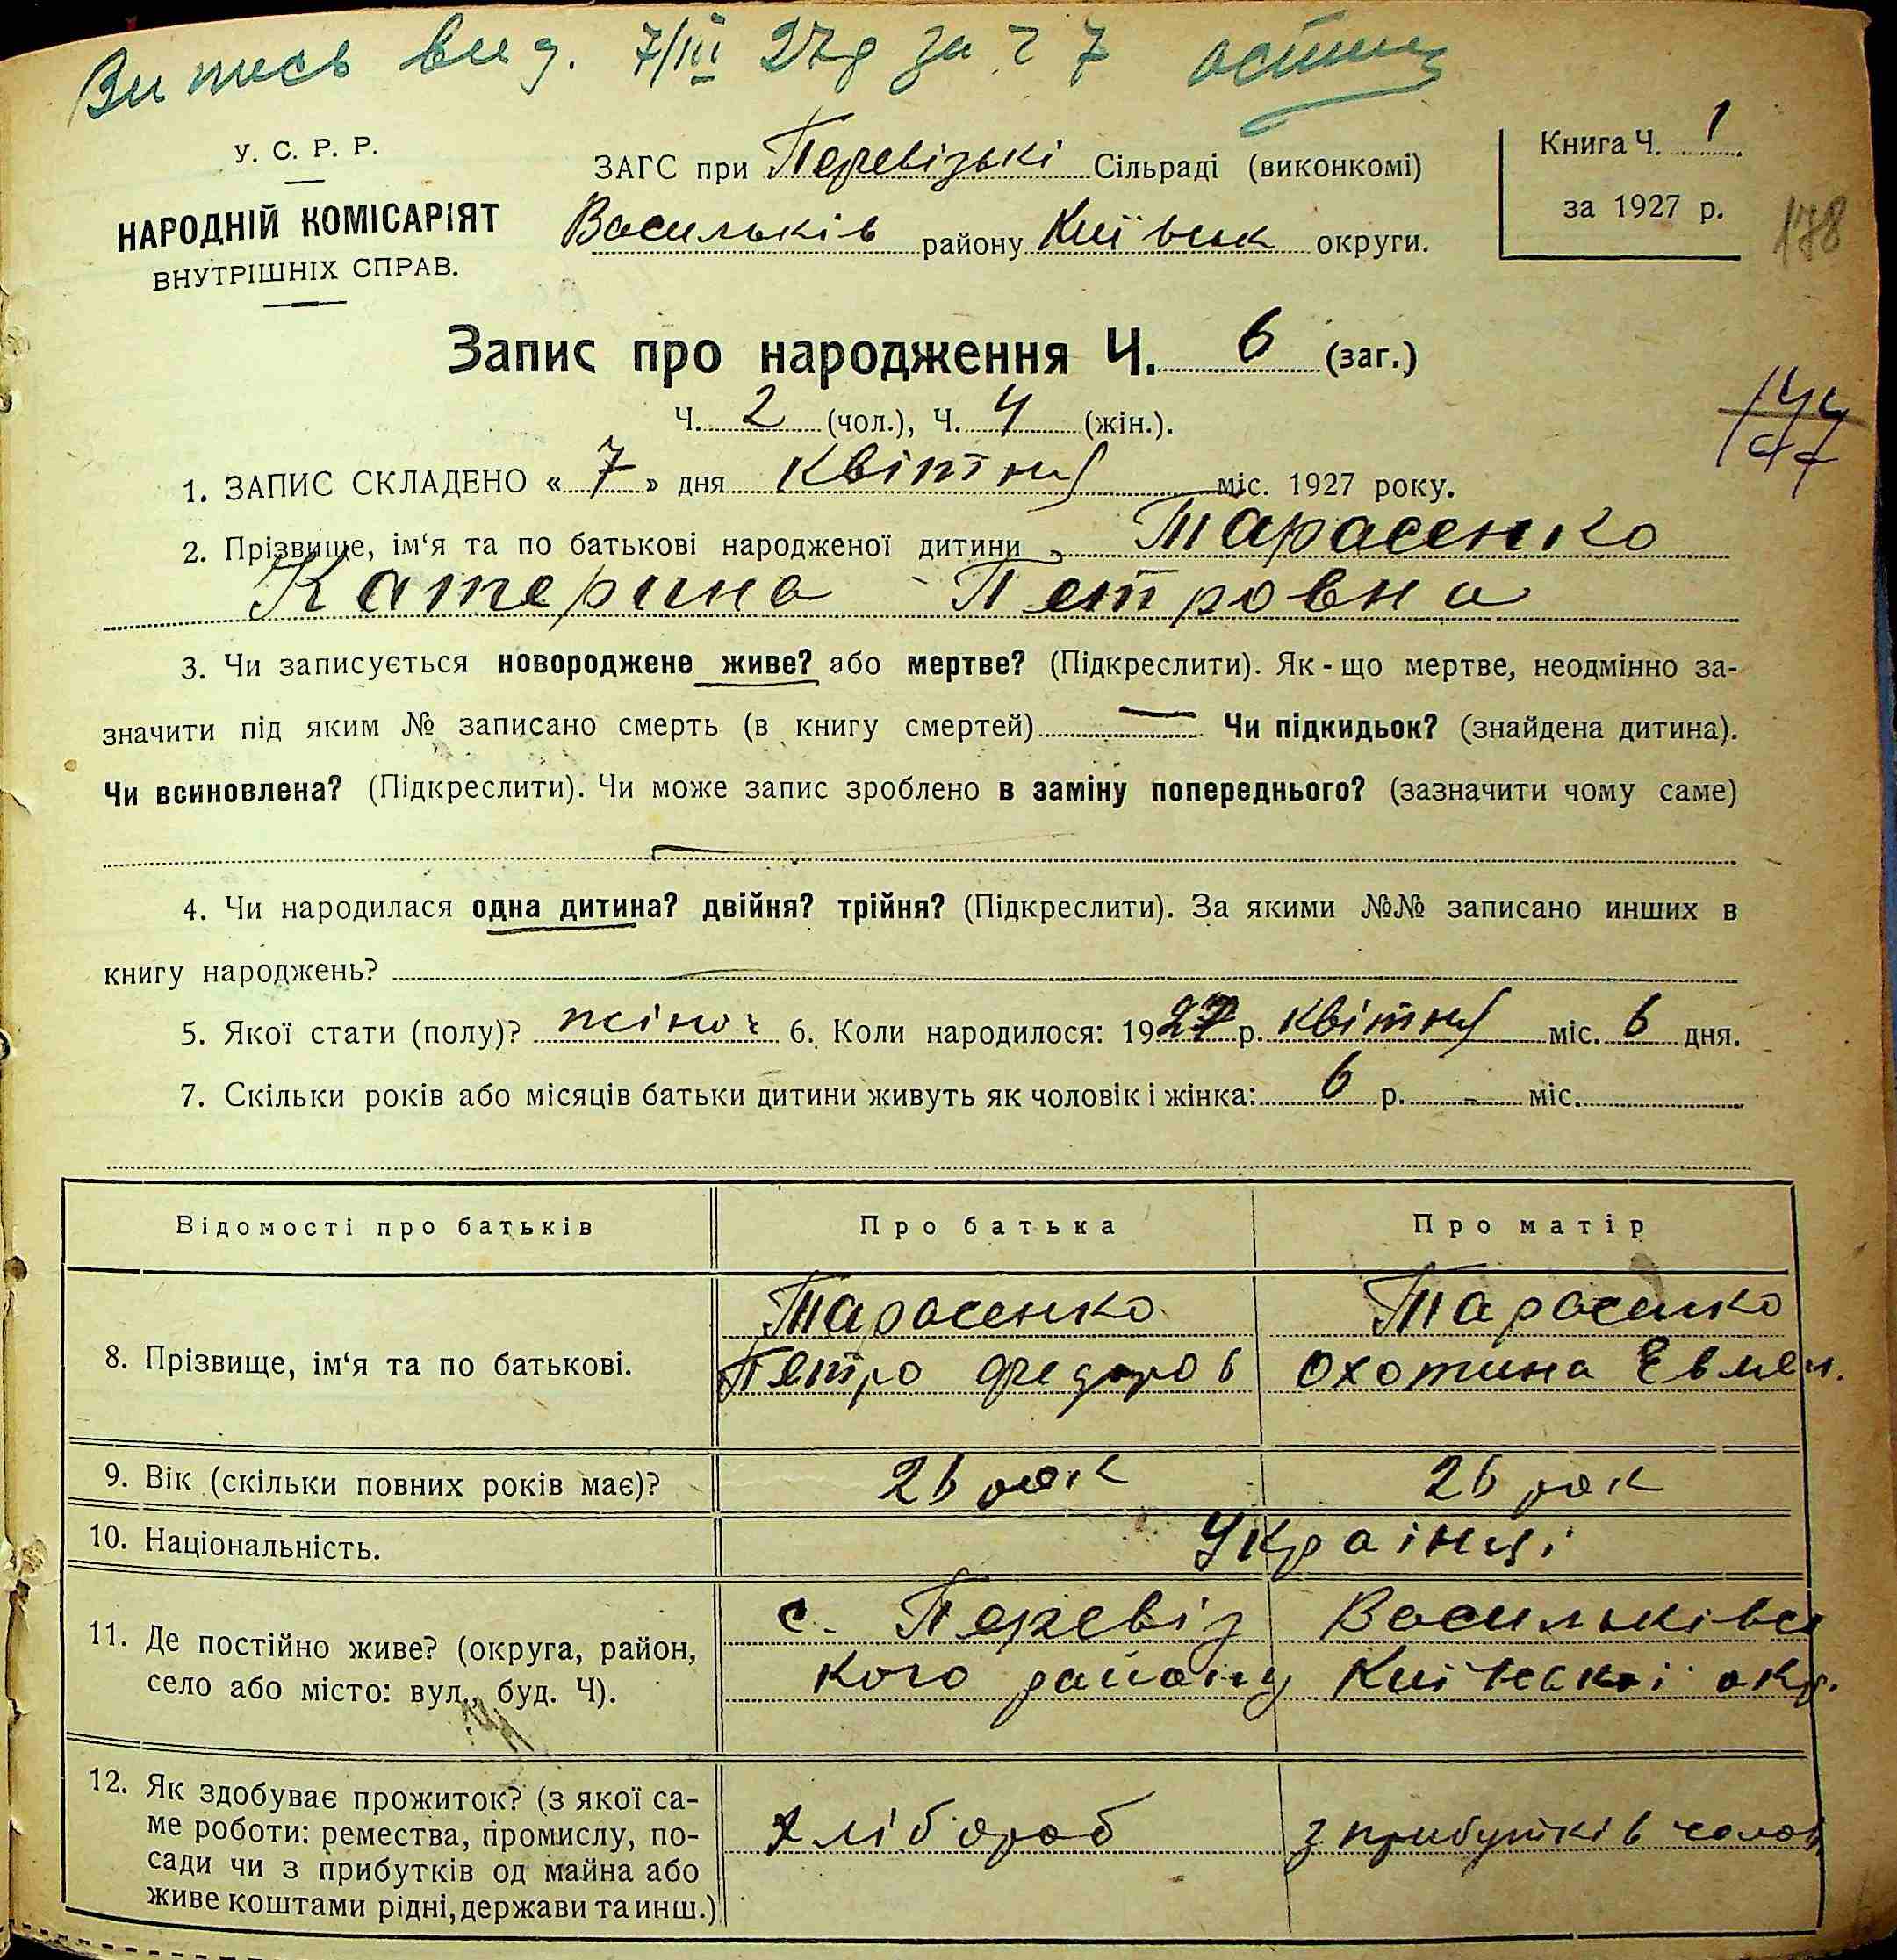 Випись вид. 7/III 27р за ч 7
У. С. Р. Р.
НАРОДНІЙ КОМІСАРІЯТ
ВНУТРІШНІХ СПРАВ.
ЗАГС при Перевізькі Сільраді (виконкомі)
Васильків району Київськ округи.
Книга Ч. 1
за 1927 р.
178
Запис про народження Ч. 6 (заг.)
Ч. 2 (чол.), Ч. 4 (жін.).
1. ЗАПИС СКЛАДЕНО « 7 » дня квітня міс. 1927 року.
2. Прізвище, ім‘я та по батькові народженої дитини Тарасенко
Катерина Петровна
3. Чи записується новороджене живе? або мертве? (Підкреслити). Як-що мертве, неодмінно за-
значити під яким № записано смерть (в книгу смертей) — Чи підкидьок? (знайдена дитина).
Чи всиновлена? (Підкреслити). Чи може запис зроблено в заміну попереднього? (зазначити чому саме)
4. Чи народилася одна дитина? двійня? трійня? (Підкреслити). За якими №№ записано инших в
книгу народжень?
5. Якої стати (полу)? жіноч 6. Коли народилося: 1927 р. квітня міс. 6 дня.
7. Скільки років або місяців батьки дитини живуть як чоловік і жінка: 6 р. - міс.
Відомості про батьків Про батька Про матір
8. Прізвище, ім‘я та по батькові.
Тарасенко Тарасенко
Петро Федоров Охотина Евмен.
9. Вік (скільки повних років має)? 26 рок 26 рок
10. Національність. Українці
11. Де постійно живе? (округа, район,
село або місто: вул., буд. Ч).
с. Перевіз Васильківсь
кого району Київської окр.
12. Як здобуває прожиток? (з якої са-
ме роботи: ремества, промислу, по-
сади чи з прибутків од майна або
живе коштами рідні, держави та инш.)
хлібороб з прибутків чолов